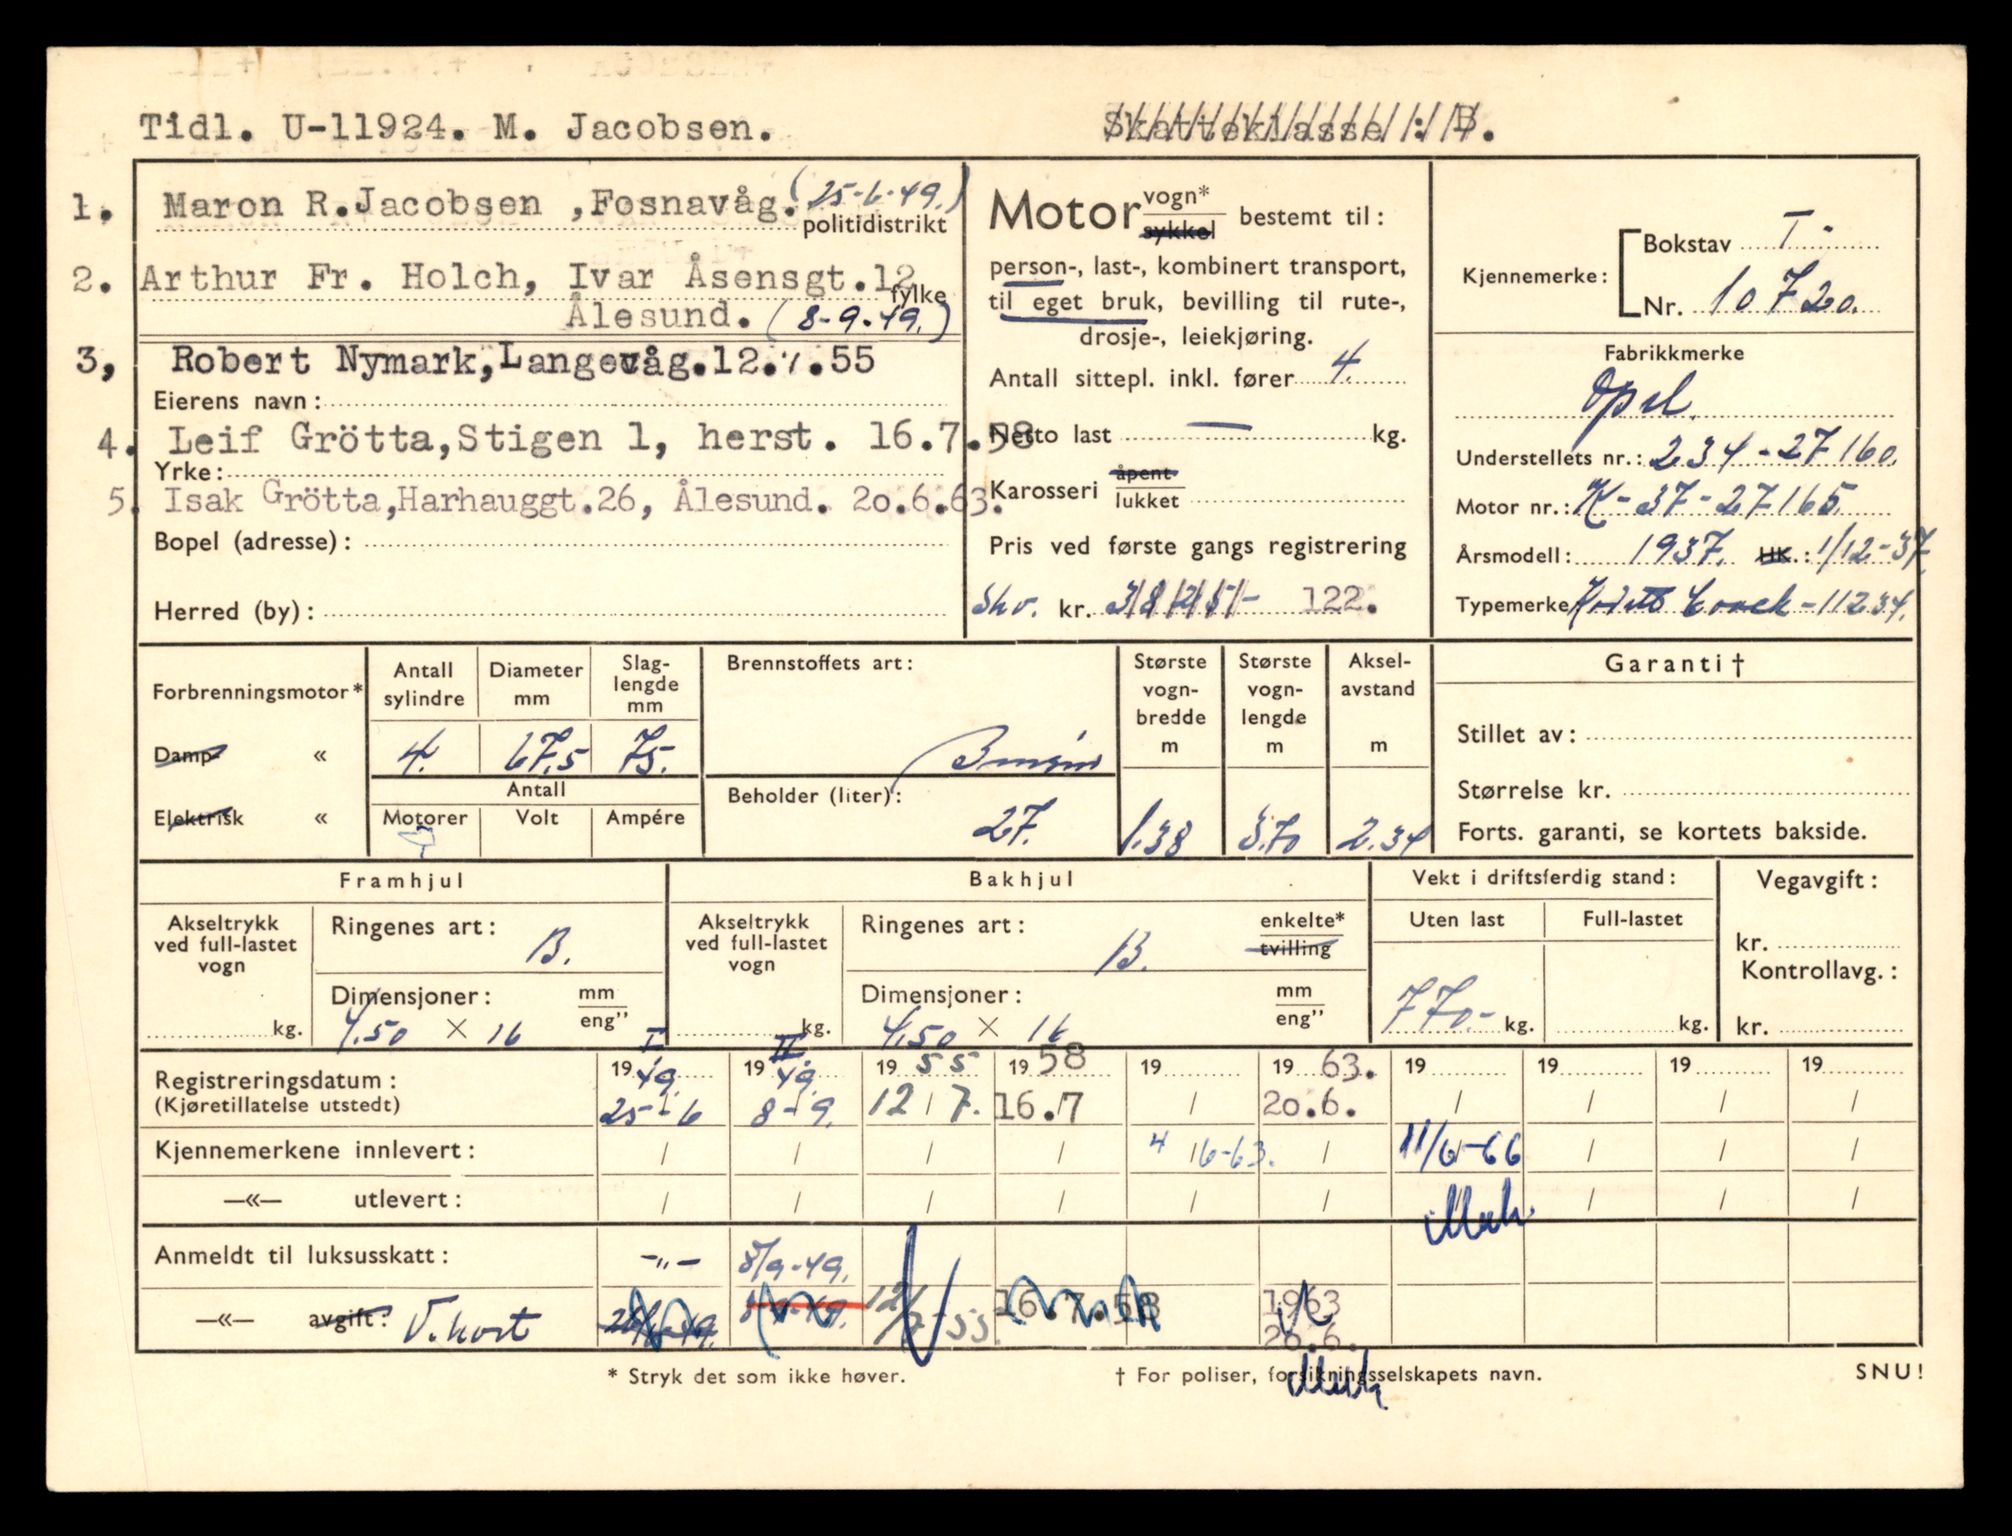 Tidl. U-11924. M. Jacobsen.
Skatteklasse : B.
1. Maron R. Jacobsen ,Fosnavåg. (25-6-49.)
politidistrikt
2. Arthur Fr. Holch, Ivar Åsensgt.12
fylke
Ålesund. (8-9-49.)
3, Robert Nymark, Langevåg. 12.7.55
Eierens navn :
4. Leif Grötta, Stigen 1, herst. 16.7.58
Yrke :
5. Isak Grötta, Harhauggt.26, Ålesund. 20.6.63.
Bopel (adresse) :
Herred (by) :
Motor vogn* sykkel bestemt til :
person-, last-, kombinert transport,
til eget bruk, bevilling til rute-,
drosje-, leiekjøring.
Antall sittepl. inkl. fører 4.
Netto last — kg.
Karosseri åpent lukket
Pris ved første gangs registrering
Skv. kr. 3825,- 122.
Kjennemerke : Bokstav T-
Nr. 10720.
Fabrikkmerke
Opel.
Understellets nr. : 234-27160.
Motor nr. : K-37-27165.
Årsmodell : 1937. HK. : 1/12-37.
Typemerke Kadett Coach-11234.
Forbrenningsmotor*
Damp «
Elektrisk «
Antall sylindre
4.
Diameter mm
67,5
Slag- lengde mm
75.
Antall
Motorer Volt Ampére
Brennstoffets art :
Bensin
Beholder (liter) :
27.
Største vogn- bredde m
1.38
Største vogn- lengde m
3.70
Aksel- avstand m
2.34
Garanti †
Stillet av :
Størrelse kr.
Forts. garanti, se kortets bakside.
Framhjul
Akseltrykk ved full-lastet vogn
kg.
Ringenes art : B.
Dimensjoner : mm eng''
4.50 × 16
Bakhjul
Akseltrykk ved full-lastet vogn
kg.
Ringenes art : B. enkelte* tvilling
Dimensjoner : mm eng''
4.50 × 16
Vekt i driftsferdig stand :
Uten last Full-lastet
770.- kg. kg.
Vegavgift :
kr.
Kontrollavg. :
kr.
I II
Registreringsdatum : 1949. 1949. 1955 1958 19 1963. 19 19 19 19
(Kjøretillatelse utstedt) 25-6 8-9. 12/7. 16.7 / 20.6. / / / /
Kjennemerkene innlevert : / / / / 4/6-63. / 11/6-66 / / /
—«— utlevert : / / / / / / / / /
Anmeldt til luksusskatt : -"- 8/9-49.
—«— avgift : V.kort 8-9-49. 12/7-55. 16.7.58 1963 20.6.
* Stryk det som ikke høver.
† For poliser, forsikringsselskapets navn.
SNU!